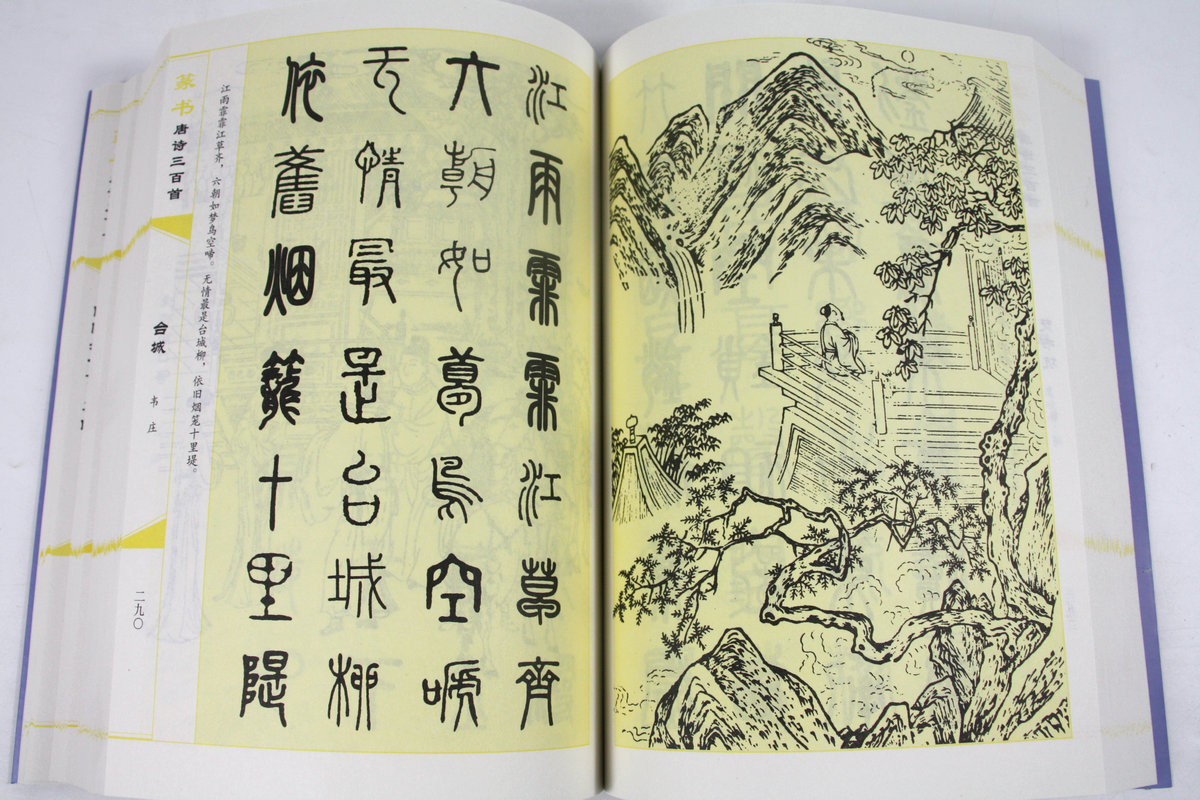 江雨霏霏江草齊
六朝如夢鳥空嗁
无情最是台城柳
依舊烟籠十里隄
江雨霏霏江草齐，六朝如梦鸟空啼。无情最是台城柳，依旧烟笼十里堤。
篆书唐诗三百首
台城 韦庄
二九〇